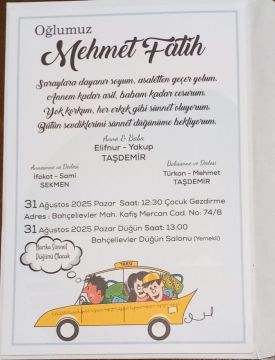 Oğlumuz
Mehmet Fatih
Saraylara dayanır soyum, asaletten geçer yolum.
Annem kadar asil, babam kadar cesurum.
Yok korkum, her erkek gibi sünnet oluyorum.
Bütün sevdiklerimi sünnet düğünüme bekliyorum.
Anne & Baba
Elifnur - Yakup
TAŞDEMİR
Anneanne ve Dedesi
İfakat - Sami
SEKMEN
Babaanne ve Dedesi
Türkan - Mehmet
TAŞDEMİR
31 Ağustos 2025 Pazar Saat: 12:30 Çocuk Gezdirme
Adres : Bahçelievler Mah. Kafiş Mercan Cad. No: 74/B
31 Ağustos 2025 Pazar Düğün Saat: 13:00
Bahçelievler Düğün Salonu (Yemekli)
Harika Sünnet
Düğünü Olacak
TAKSİ